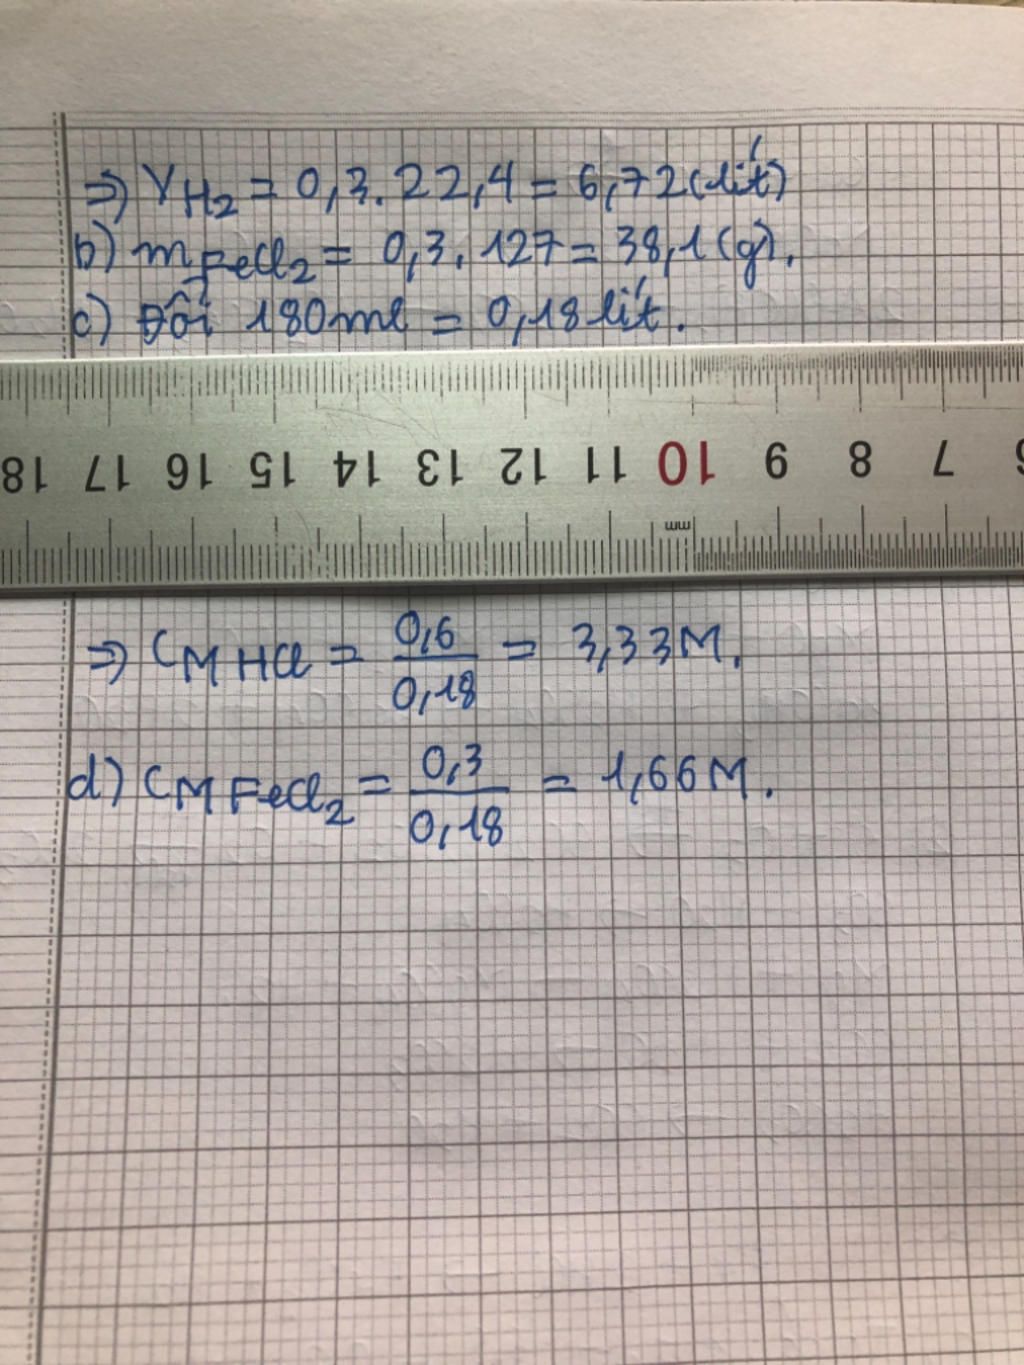 => VH2 = 0,3.22,4 = 6,72(lít)
b) mFeCl2 = 0,3.127 = 38,1(g).
c) Đổi 180ml = 0,18 lít.
18 17 16 15 14 13 12 11 10 9 8 7 6
mm
=> CM HCl = 0,6/0,18 = 3,33M.
d) CM FeCl2 = 0,3/0,18 = 1,66M.